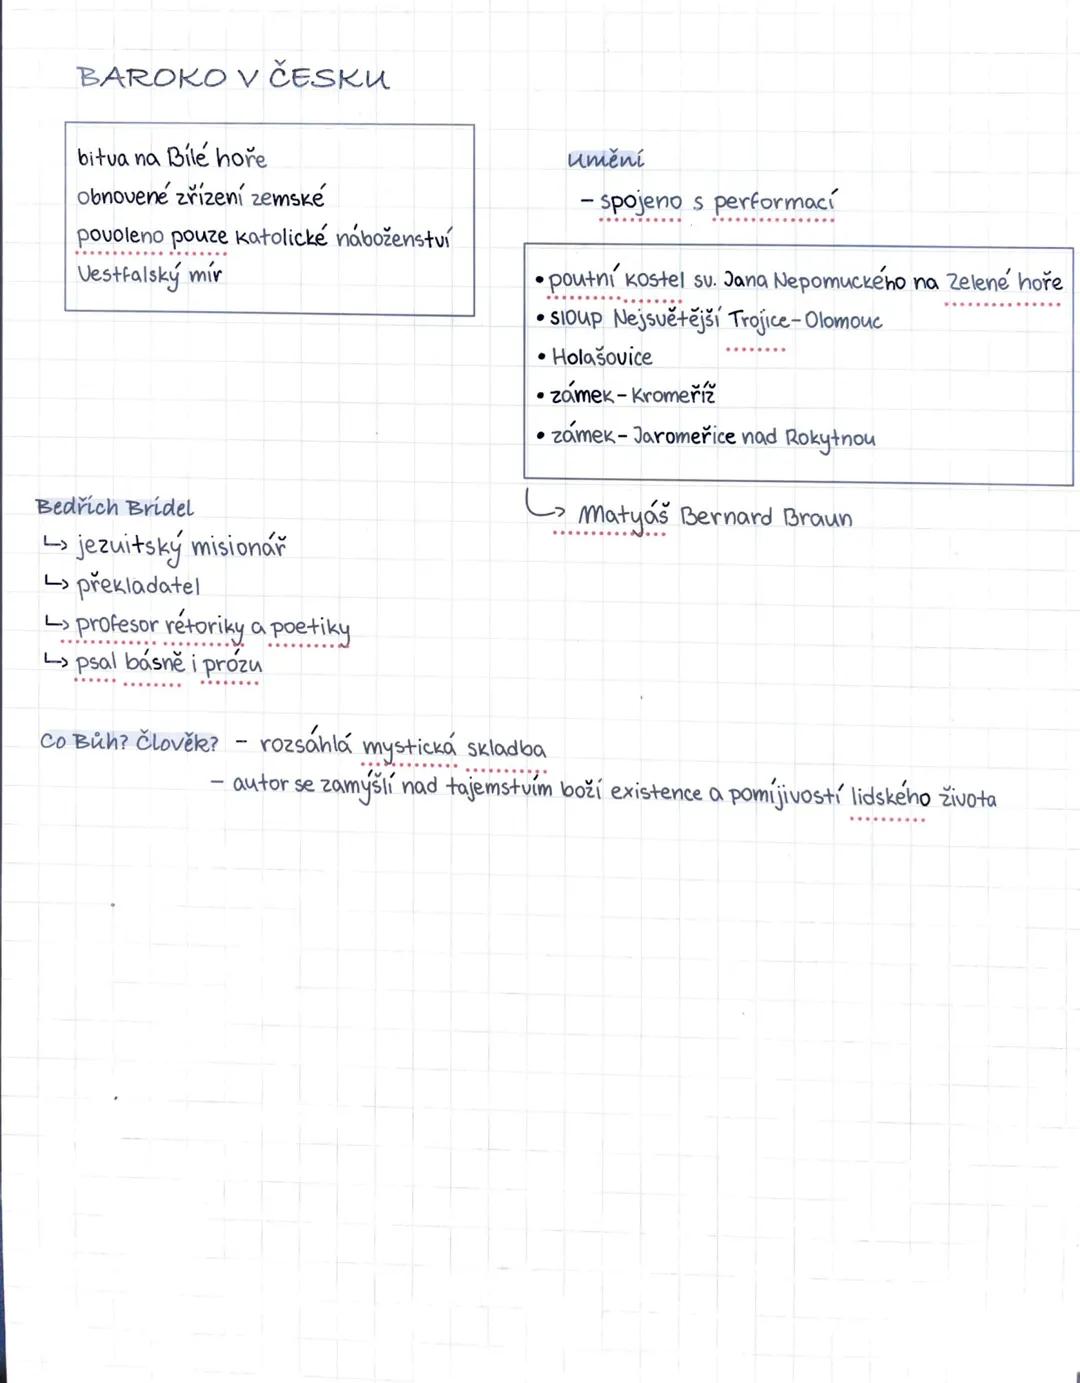 BAROKO V ČESKU
bitva na Bílé hoře
obnovené zřízení zemské
povoleno pouze katolické náboženství
Vestfalský mír
umění
- spojeno s performací
• poutní kostel sv. Jana Nepomuckého na Zelené hoře
• sloup Nejsvětější Trojice - Olomouc
• Holašovice
• zámek - Kromeříž
• zámek - Jaromeřice nad Rokytnou
↳ Matyáš Bernard Braun
Bedřich Bridel
↳ jezuitský misionář
↳ překladatel
↳ profesor rétoriky a poetiky
↳ psal básně i prózu
Co Bůh? Člověk? - rozsáhlá mystická skladba
- autor se zamýšlí nad tajemstvím boží existence a pomíjivostí lidského života